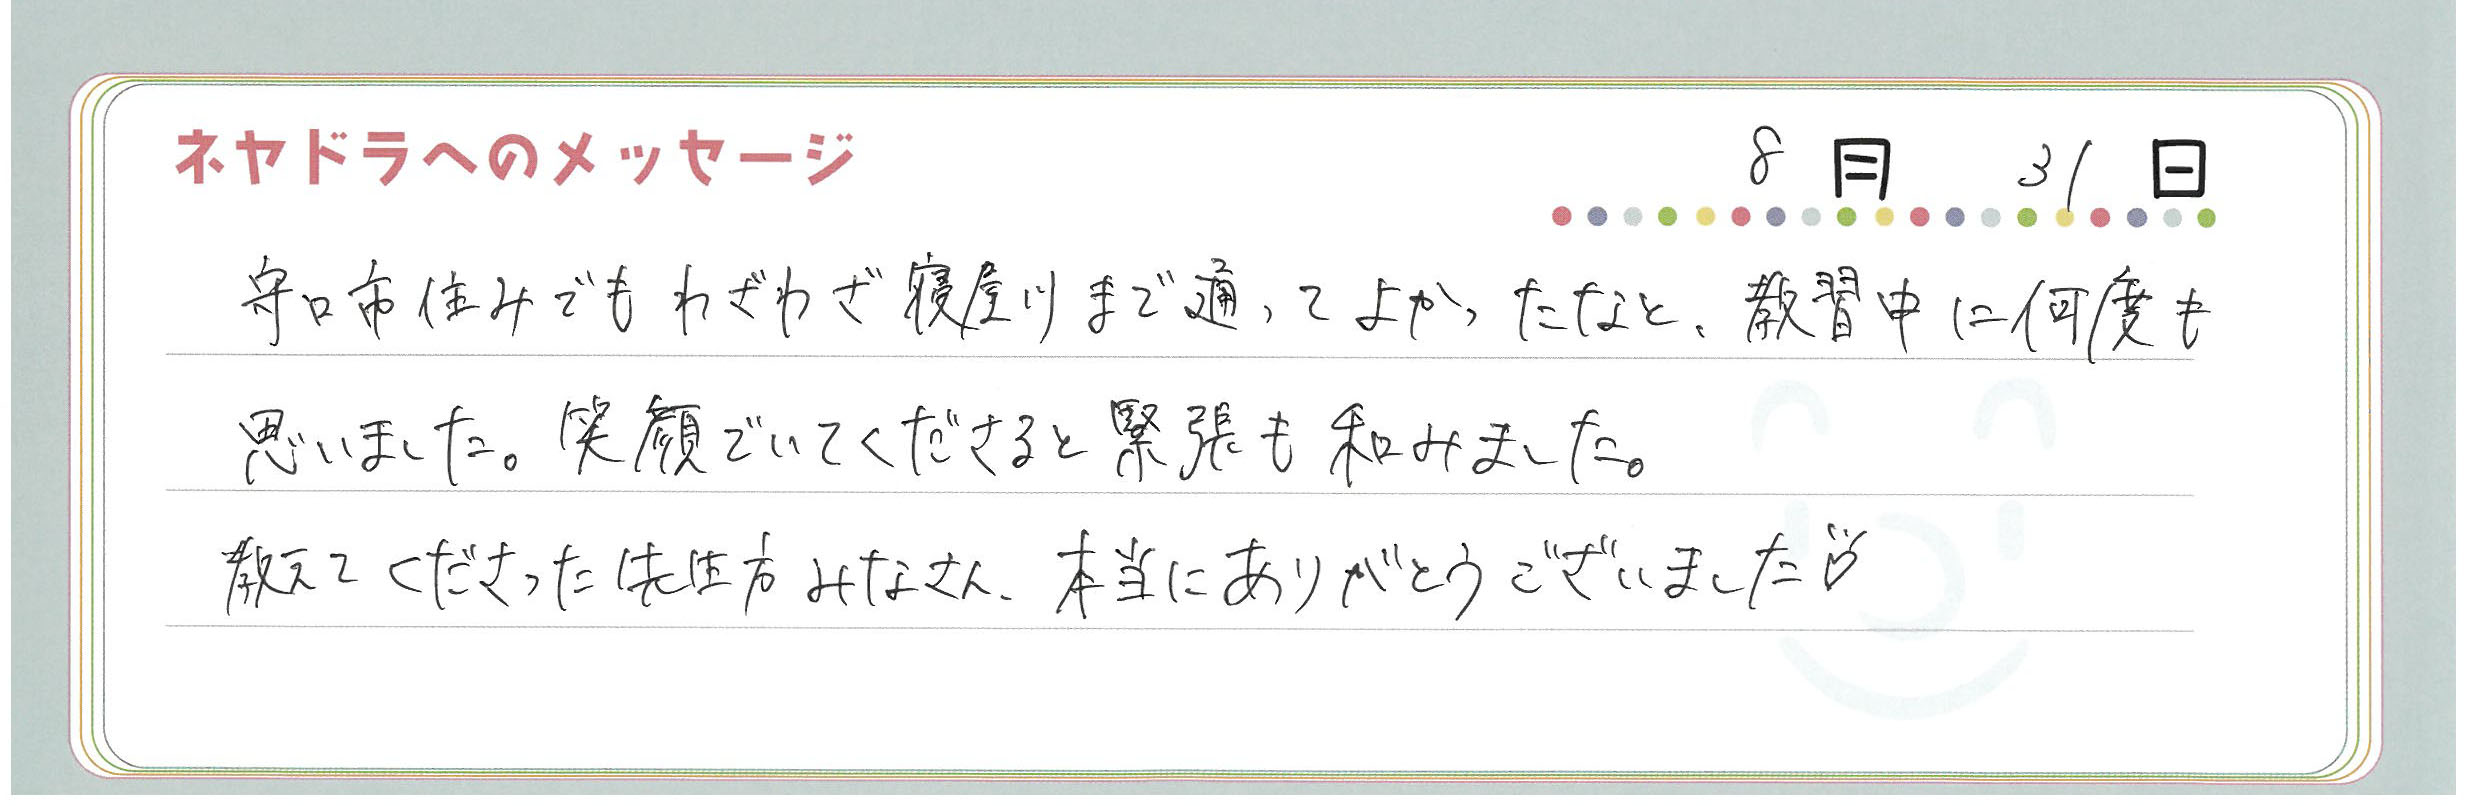 ネヤドラへのメッセージ
8月31日
守口市住みでもわざわざ寝屋川まで通ってよかったなと、教習中に何度も
思いました。笑顔でいてくださると緊張も和みました。
教えてくださった先生方みなさん、本当にありがとうございました♡